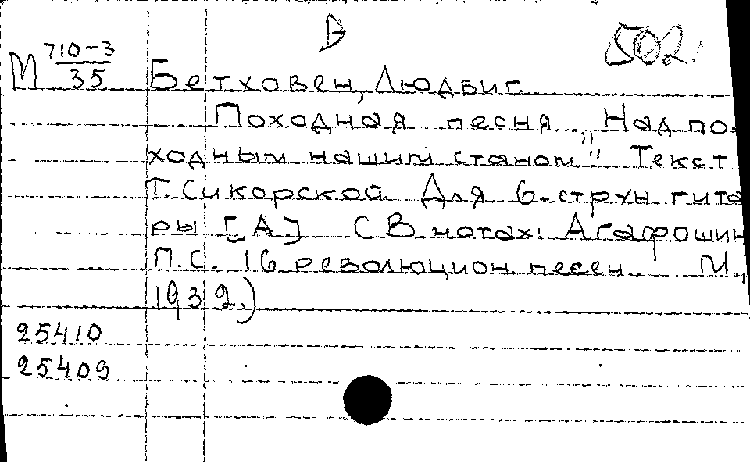 В 502.
М 710-3
35
Бетховен, Людвиг.
Походная песня „Над по-
ходным нашим станом" Текст
Т. Сикорской Для 6-струн. гита
ры [А.] (В нотах: Агафошин
П.С. 16 революцион. песен. М.,
1939.)
25410
25409